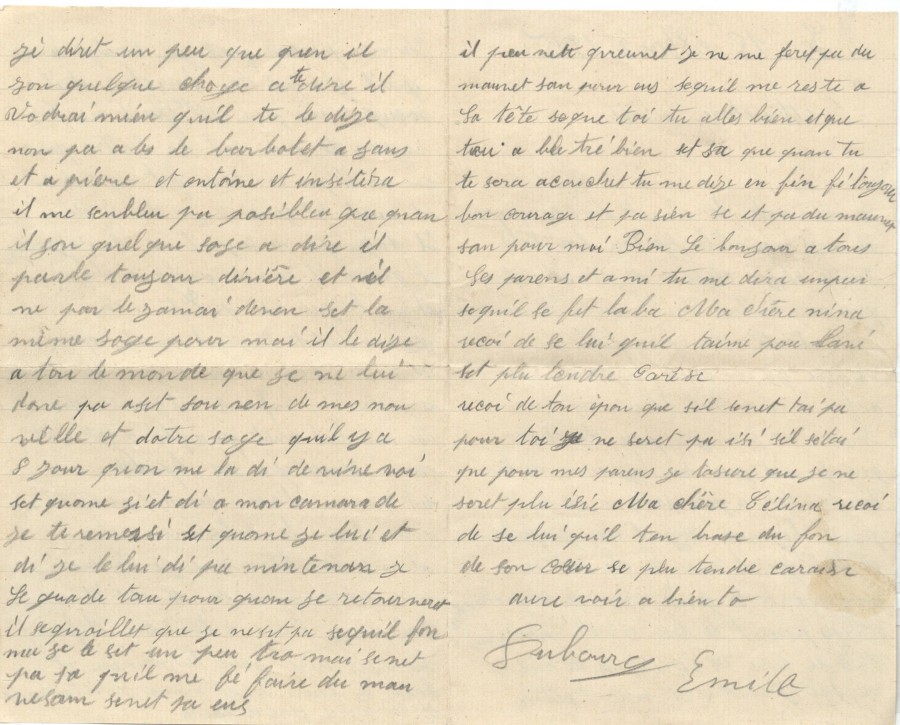 je diret un peu que quen il
son quelque choge a te dire il
vodrai mieu qu'il te le dize
non pa a les le barbolet a sans
et a piérre et antoine et insitéra
il me senbleu pa posibleu que quan
il son quelque soge a dire il
parle toujour dérière et
ne par le zamai deven set la
même soge pour mai il le dize
a tou le monde que je ne lui
done pa aset souven de mes nou
vélle et dotre soge qu'il y a
8 zour qu'on me la di de vine voi
set quome zi'et di a mon camarade
je te remersi set quome je lui et
di je le lui di pa mintenan je
le guade tou pour quan je retourneret
il se quoaillet que je neset pa sequil fon
mai je le set un peu tro mai senet
pa sa qu'il me fé faire du mau
vesam senet sa eus
il peu nett preunet je ne me feret pa du
mauvet san pour aus sequil me reste a
la tête seque toi tu alles bien et que
tou a lle tré bien et sa que quan tu
te sera acouchet tu me dize en fén fé toujour
bon courage et pa sién se et pa du mauvet
san pour moi Bien le bonjour a tous
les parens et ami tu me dira unpeu
sequil se fet laba Ma chère nina
recoi de se lui qu'il taime pou
set plu tendre
recoi de ton épou que sil senet tai pa
pour toi je ne seret pa isi sél sétai
que pour mes parens je tasure que je ne
seret plu isie Ma chère Célina recoi
de se lui qu'il ten brase du fon
de son coeur se plu tendre
aure voir a biento
Dubourg Emile